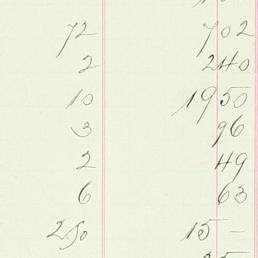 72 702
2 240
10 1950
3 96
2 49
6 63
250 15 –